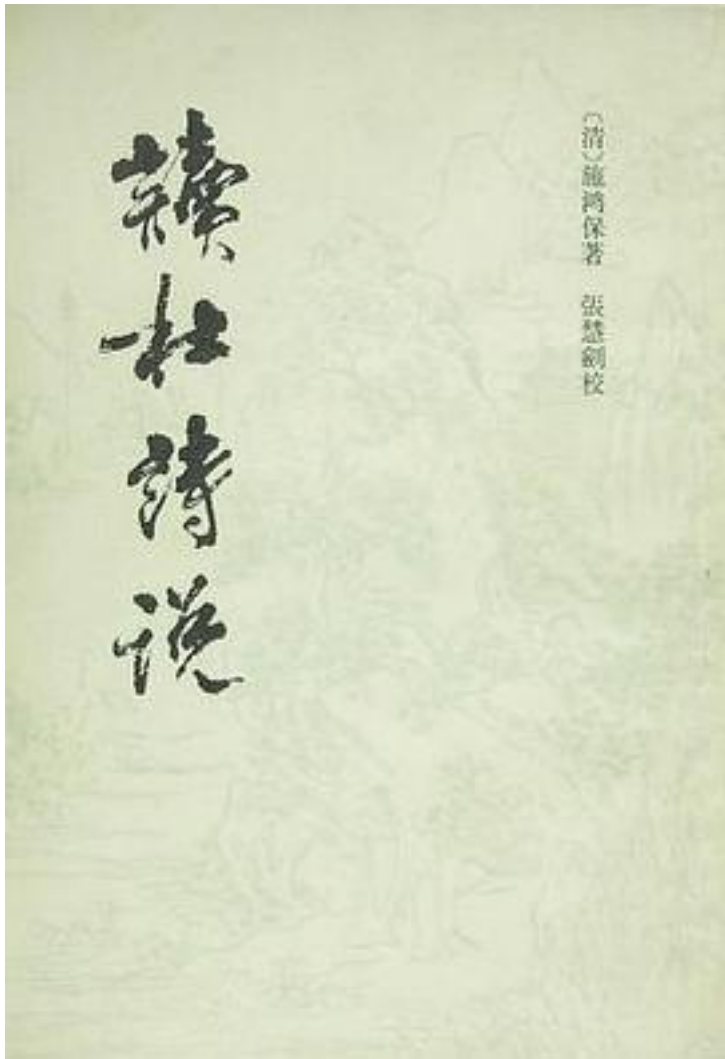 〔清〕施鸿保著　張慧劍校
讀杜詩说